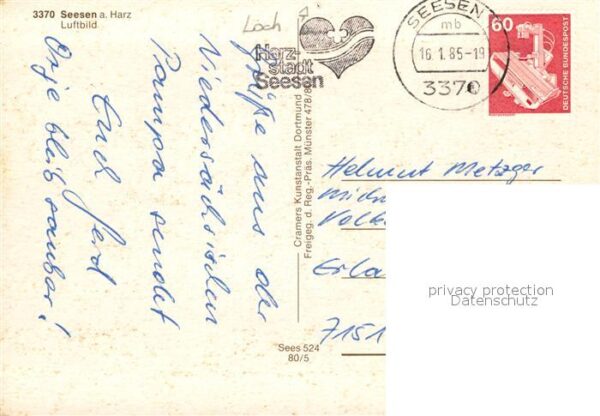 3370 Seesen a. Harz
Luftbild
Loch
Harz-
stadt
Seesen
SEESEN
mb
16.1.85-19
3370
60
DEUTSCHE BUNDESPOST
Grüße aus der
Niedersächsischen
Pampa sendet
Euch Gerd
bleib sauber!
Cramers Kunstanstalt Dortmund
Freigeg. d. Reg.-Präs. Münster 478/8
Helmut Metzger
Erla
7151
privacy protection
Datenschutz
Sees 524
80/5